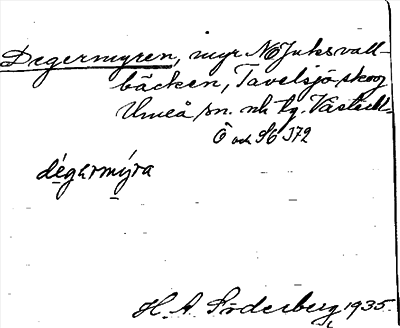 Degermyren, myr NO Juksvall-
bäcken, Tavelsjö skog
Umeå sn. nk tg. Västerb.
Ö och SG 372
dégermýra
H. A. Söderberg 1935.